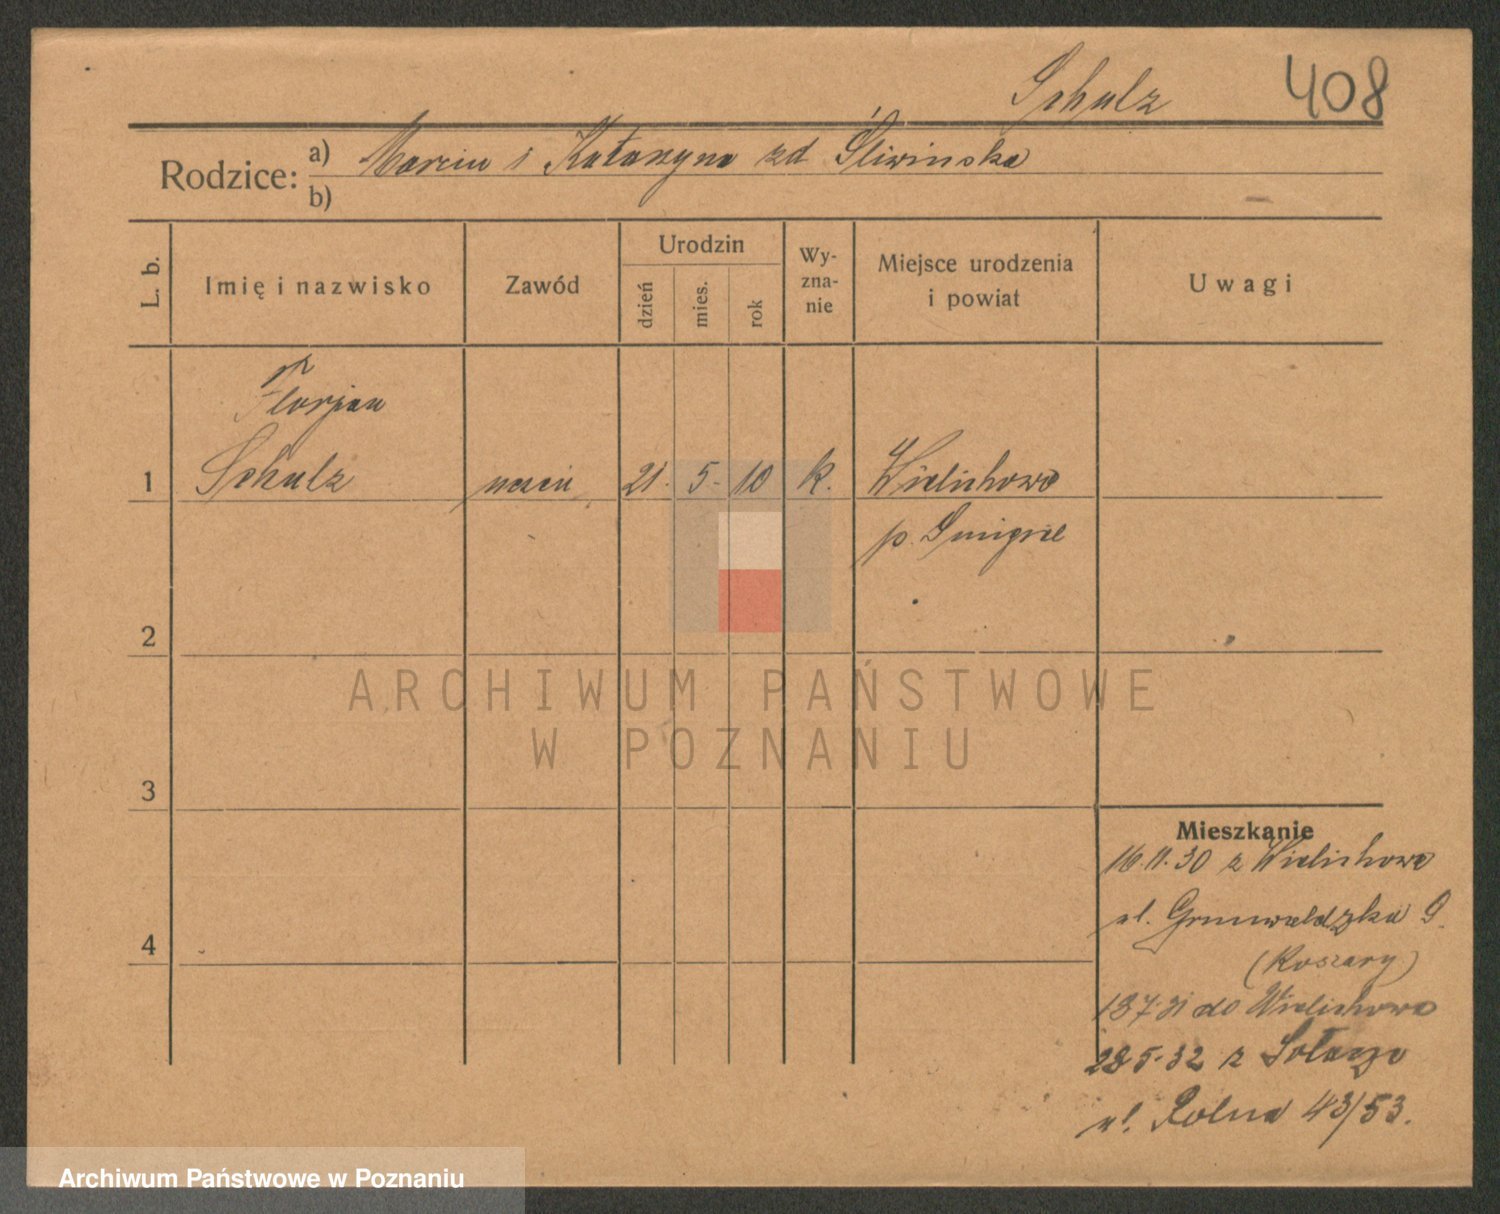 Schulz 408
Rodzice: a) Marcin i Katarzyna zd Śliwińska
b)
L. b. Imię i nazwisko Zawód Urodzin dzień mies. rok Wy-zna-nie Miejsce urodzenia i powiat Uwagi
Florjan
1 Schulz uczeń 21. 5. 10 k. Wielichowo
p. Śmigiel
2
ARCHIWUM PAŃSTWOWE
W POZNANIU
3
Mieszkanie
16.11.30 z Wielichowo
ul. Grunwaldzka 9.
4
(Koszary)
18 7 31 do Wielichowo
28 5. 32 z Sołacza
ul. Rolna 43/53.
Archiwum Państwowe w Poznaniu